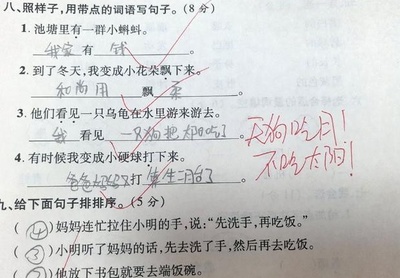 八、照样子,用带点的词语写句子。(8分)
1. 池塘里有一群小蝌蚪。
我家 有 钱
2. 到了冬天,我变成小花朵飘下来。
和尚用 飘 柔
3. 他们看见一只乌龟在水里游来游去。
我 看见 一只狗把太阳吃了 天狗吃月!
不吃太阳!
4. 有时候我变成小硬球打下来。
爸爸 打
九、给下面句子排排序。(5分)
(4)妈妈连忙拉住小明的手,说:“先洗手,再吃饭。”
(3)小明听了妈妈的话,先去洗了手,然后再去吃饭。
他放下书包就要去端饭碗。